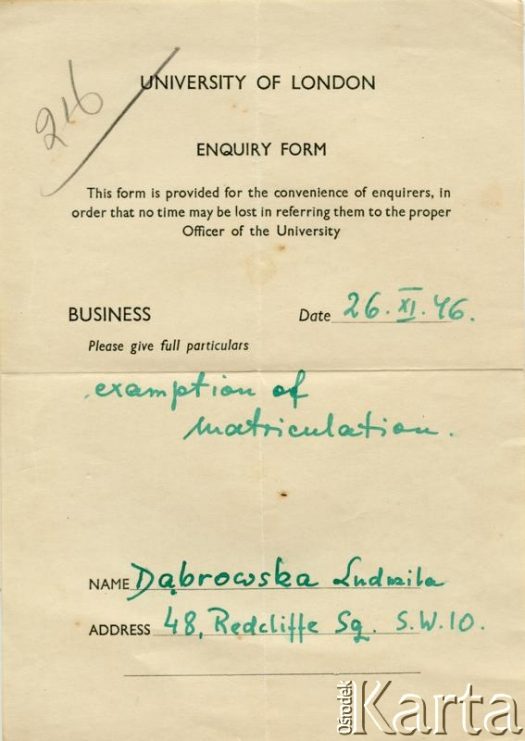 216
UNIVERSITY OF LONDON
ENQUIRY FORM
This form is provided for the convenience of enquirers, in
order that no time may be lost in referring them to the proper
Officer of the University
BUSINESS Date 26. XI. 46.
Please give full particulars
examption of
matriculation.
NAME Dąbrowska Ludmila
ADDRESS 48, Redcliffe Sq. S.W.10.
Ośrodek Karta